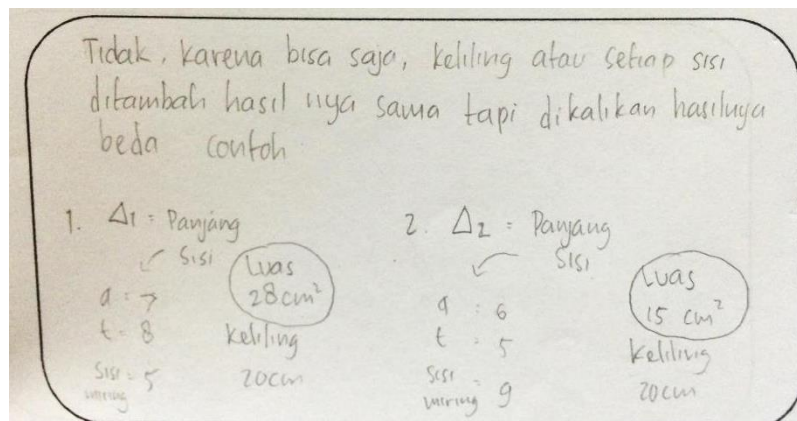 Tidak, karena bisa saja, keliling atau setiap sisi
ditambah hasil nya sama tapi dikalikan hasilnya
beda contoh
1. Δ1 = Panjang
Sisi
a : 7
t = 8
Sisi = 5
miring
Luas
28 cm²
Keliling
20cm
2. Δ2 = Panjang
Sisi
a : 6
t : 5
Sisi = 9
miring
Luas
15 cm²
Keliling
20cm